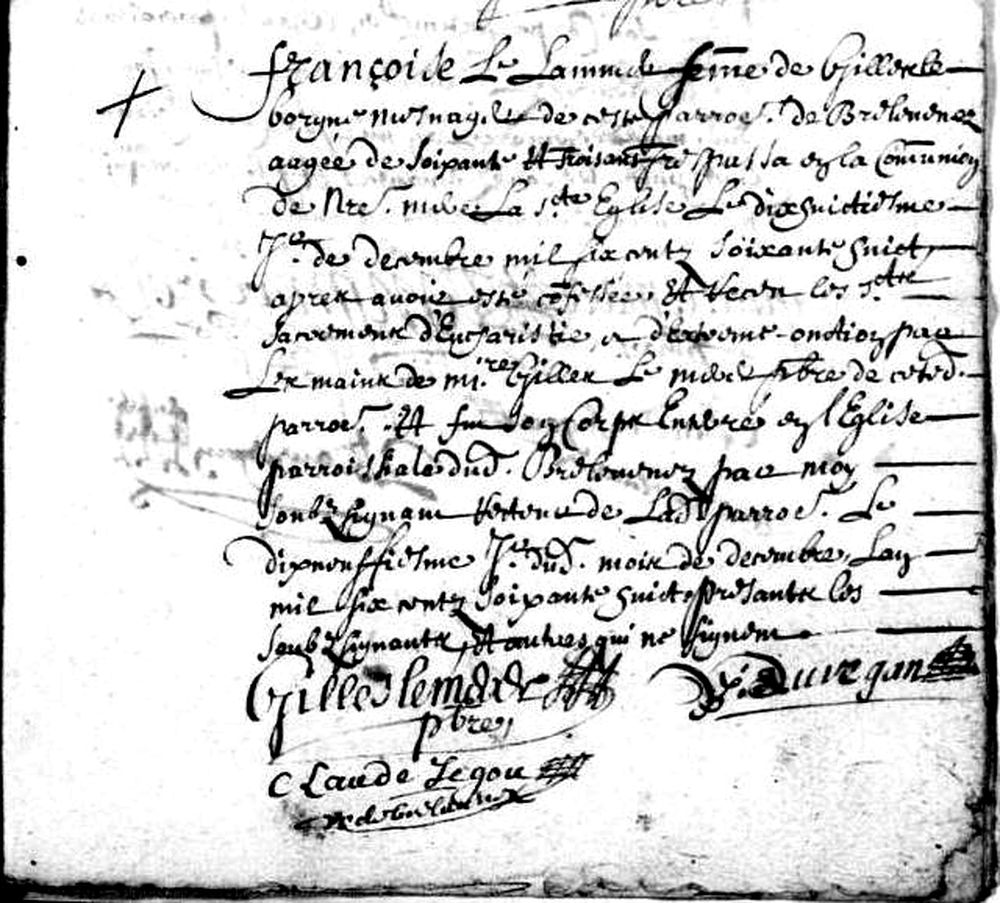 françoise Le Lammde feme de Gilles le
borgne mesnager de ceste parroes. de Brelevenez
aagée de soixante et trois ans trespassa en la Comunion
de nre. mere La ste Eglise Le dixhuictiesme
Jo. de decembre mil six centz soixante huict
apres avoir esté cofessée et Receu les stes
sacrements d'Eucharistie et d'extreme-onction par
Les mains de mi.re Gilles Le pbre de ceted.
parroes. et fut son Corps Enterré en l'Eglise
parroishiale dud. Brelevenez par moy
soubz signant Recteur de Lad. parroes. Le
dixneuffiesme Jo. dud. mois de decembre Lan
mil six centz soixante huict presants les
soubz signants et autres qui ne signent
Gilles pbre
Claude Jegou
R. de Brelevenez